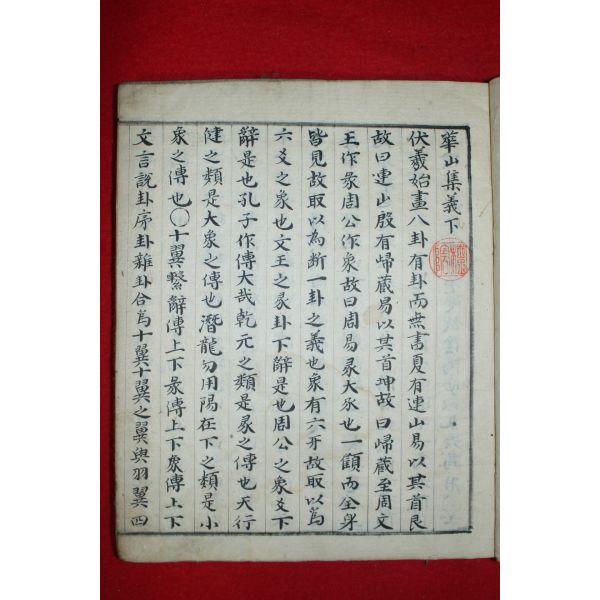 華山集義下
伏羲始畫八卦有卦而無書夏有連山易以其首艮
故曰連山殷有歸藏易以其首坤故曰歸藏至周文
王作彖周公作象故曰周易彖大豕也一顧而全身
皆見故取以為斷一卦之義也象有六牙故取以爲
六爻之象也文王之彖卦下辭是也周公之象爻下
辭是也孔子作傳大哉乾元之類是彖之傳也天行
健之類是大象之傳也潛龍勿用陽在下之類是小
象之傳也〇十翼繫辭傳上下彖傳上下象傳上下
文言說卦序卦雜卦合爲十翼十翼之翼與羽翼四